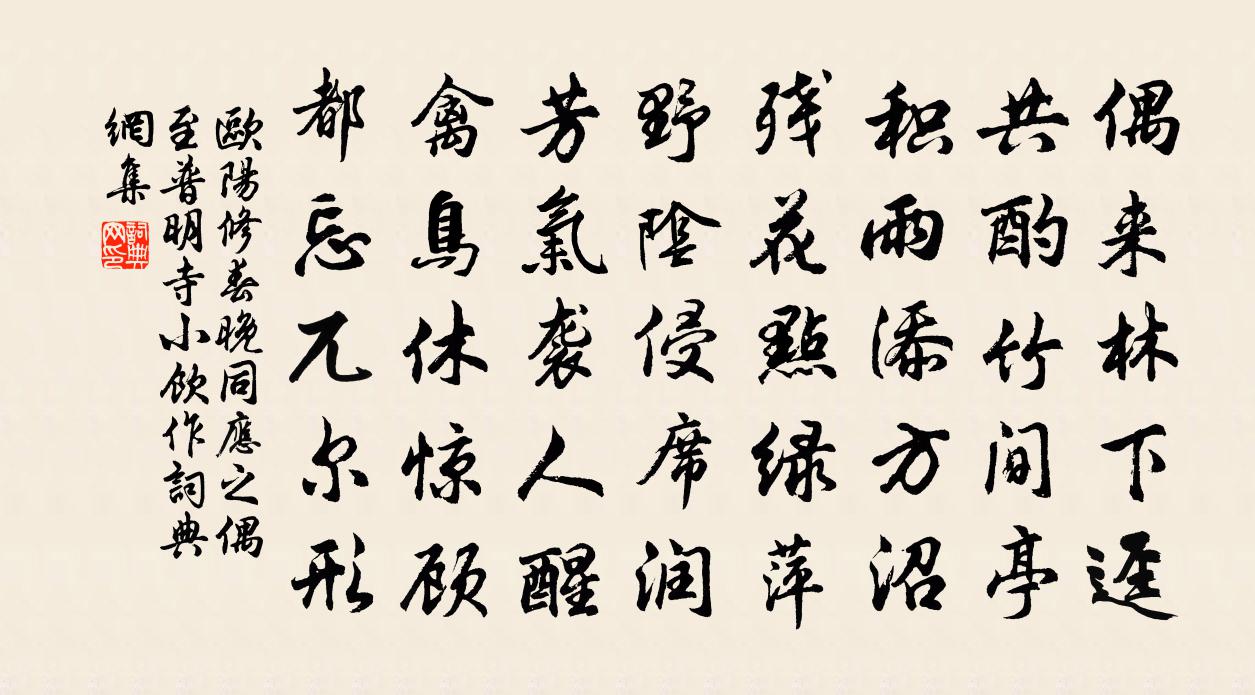 偶来林下迳
共酌竹间亭
积雨添方沼
残花點绿萍
野陰侵席润
芳氣袭人醒
禽鳥休惊顾
都忘兀尔形
歐陽修春晚同應之偶
至普明寺小飲作詞典
網集
詞典网印